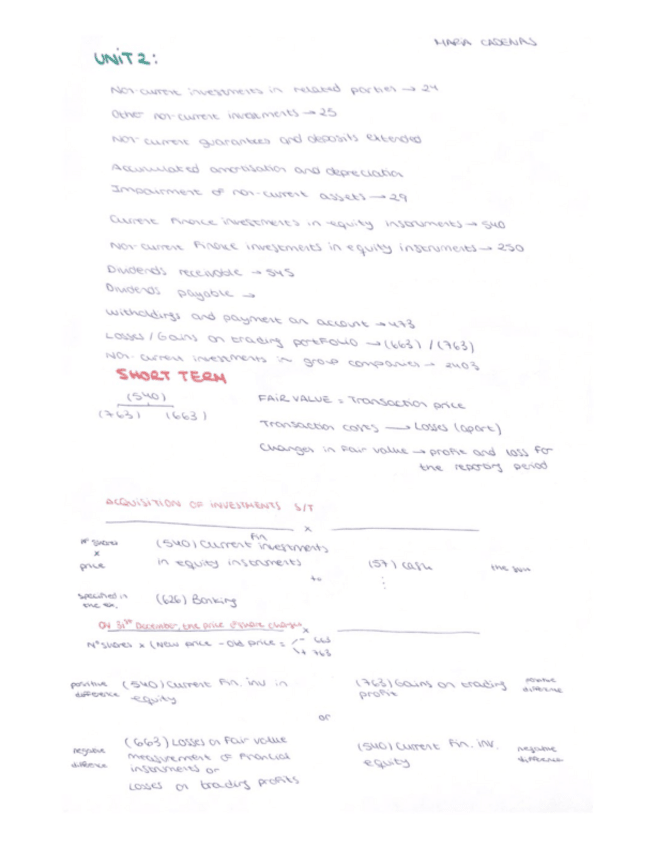 MARIA CADENAS
UNIT 2:
Non-current investments in related parties → 24
Other non-current investments → 25
Non-current guarantees and deposits extended
Accumulated amortisation and depreciation
Impairment of non-current assets → 29
Current finance investments in equity instruments → 540
Non-current finance investments in equity instruments → 250
Dividends receivable → 545
Dividends payable →
Witholdings and payment on account → 473
Losses / Gains on trading portfolio → (663) / (763)
Non-current investments in group companies → 2403
SHORT TERM
(540)
(763) (663)
FAIR VALUE = Transaction price
Transaction costs → Losses (apart)
Changes in Fair value → profit and loss for
the reporting period
ACQUISITION OF INVESTMENTS S/T
x
nº shares
x
price
(540) Current fin investments
in equity instruments
to
(57) Cash
the sum
specified in
the ex.
(626) Banking
On 31st December, the price of share changes
x
Nº shares x (New price - Old price = - 663
+ 763
positive
difference
(540) Current Fin. inv in
equity
(763) Gains on trading
profit
positive
difference
or
negative
difference
(663) Losses on Fair value
measurement of financial
instruments or
Losses on trading profits
(540) Current Fin. inv.
equity
negative
difference